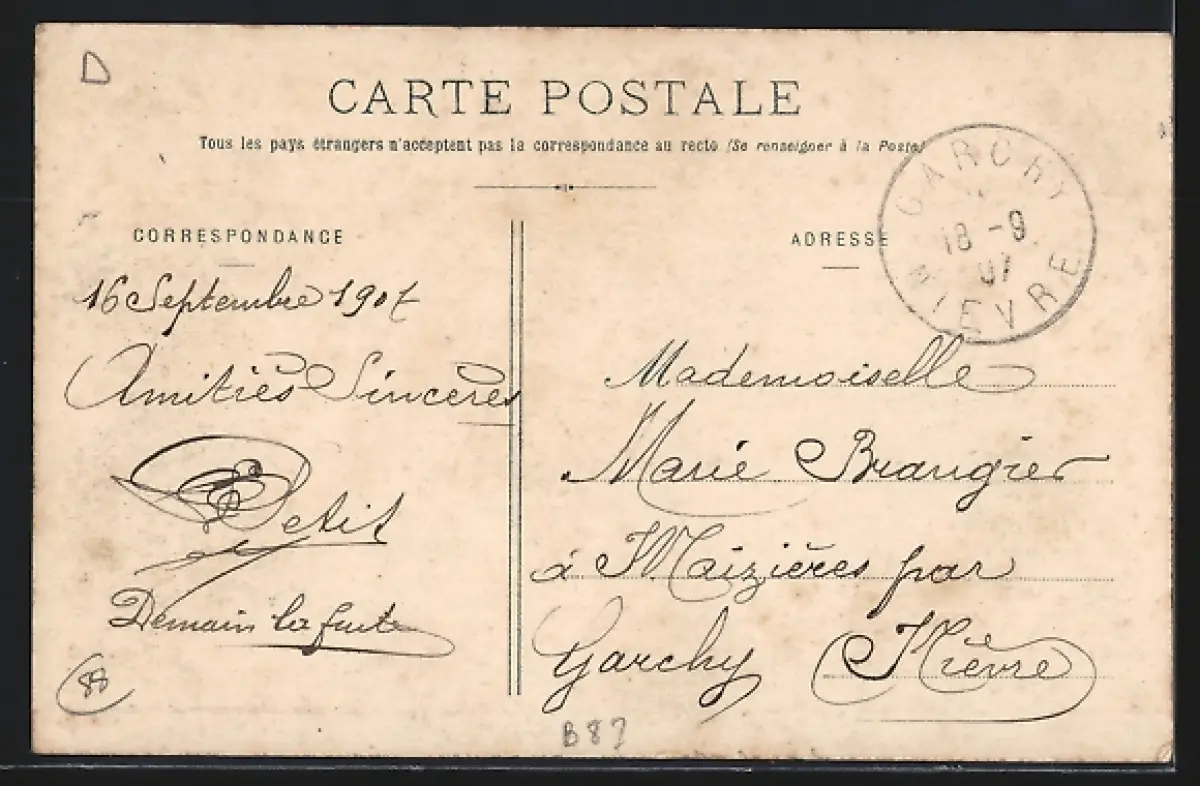 D
CARTE POSTALE
Tous les pays étrangers n'acceptent pas la correspondance au recto (Se renseigner à la Poste)
CORRESPONDANCE
ADRESSE
GARCHY
18 - 9
07
NIEVRE
16 Septembre 1907
Amitiés Sincères
Petit
Demain la fuite
88
Mademoiselle
Marie Brangier
à Maizières par
Garchy Nièvre
B87